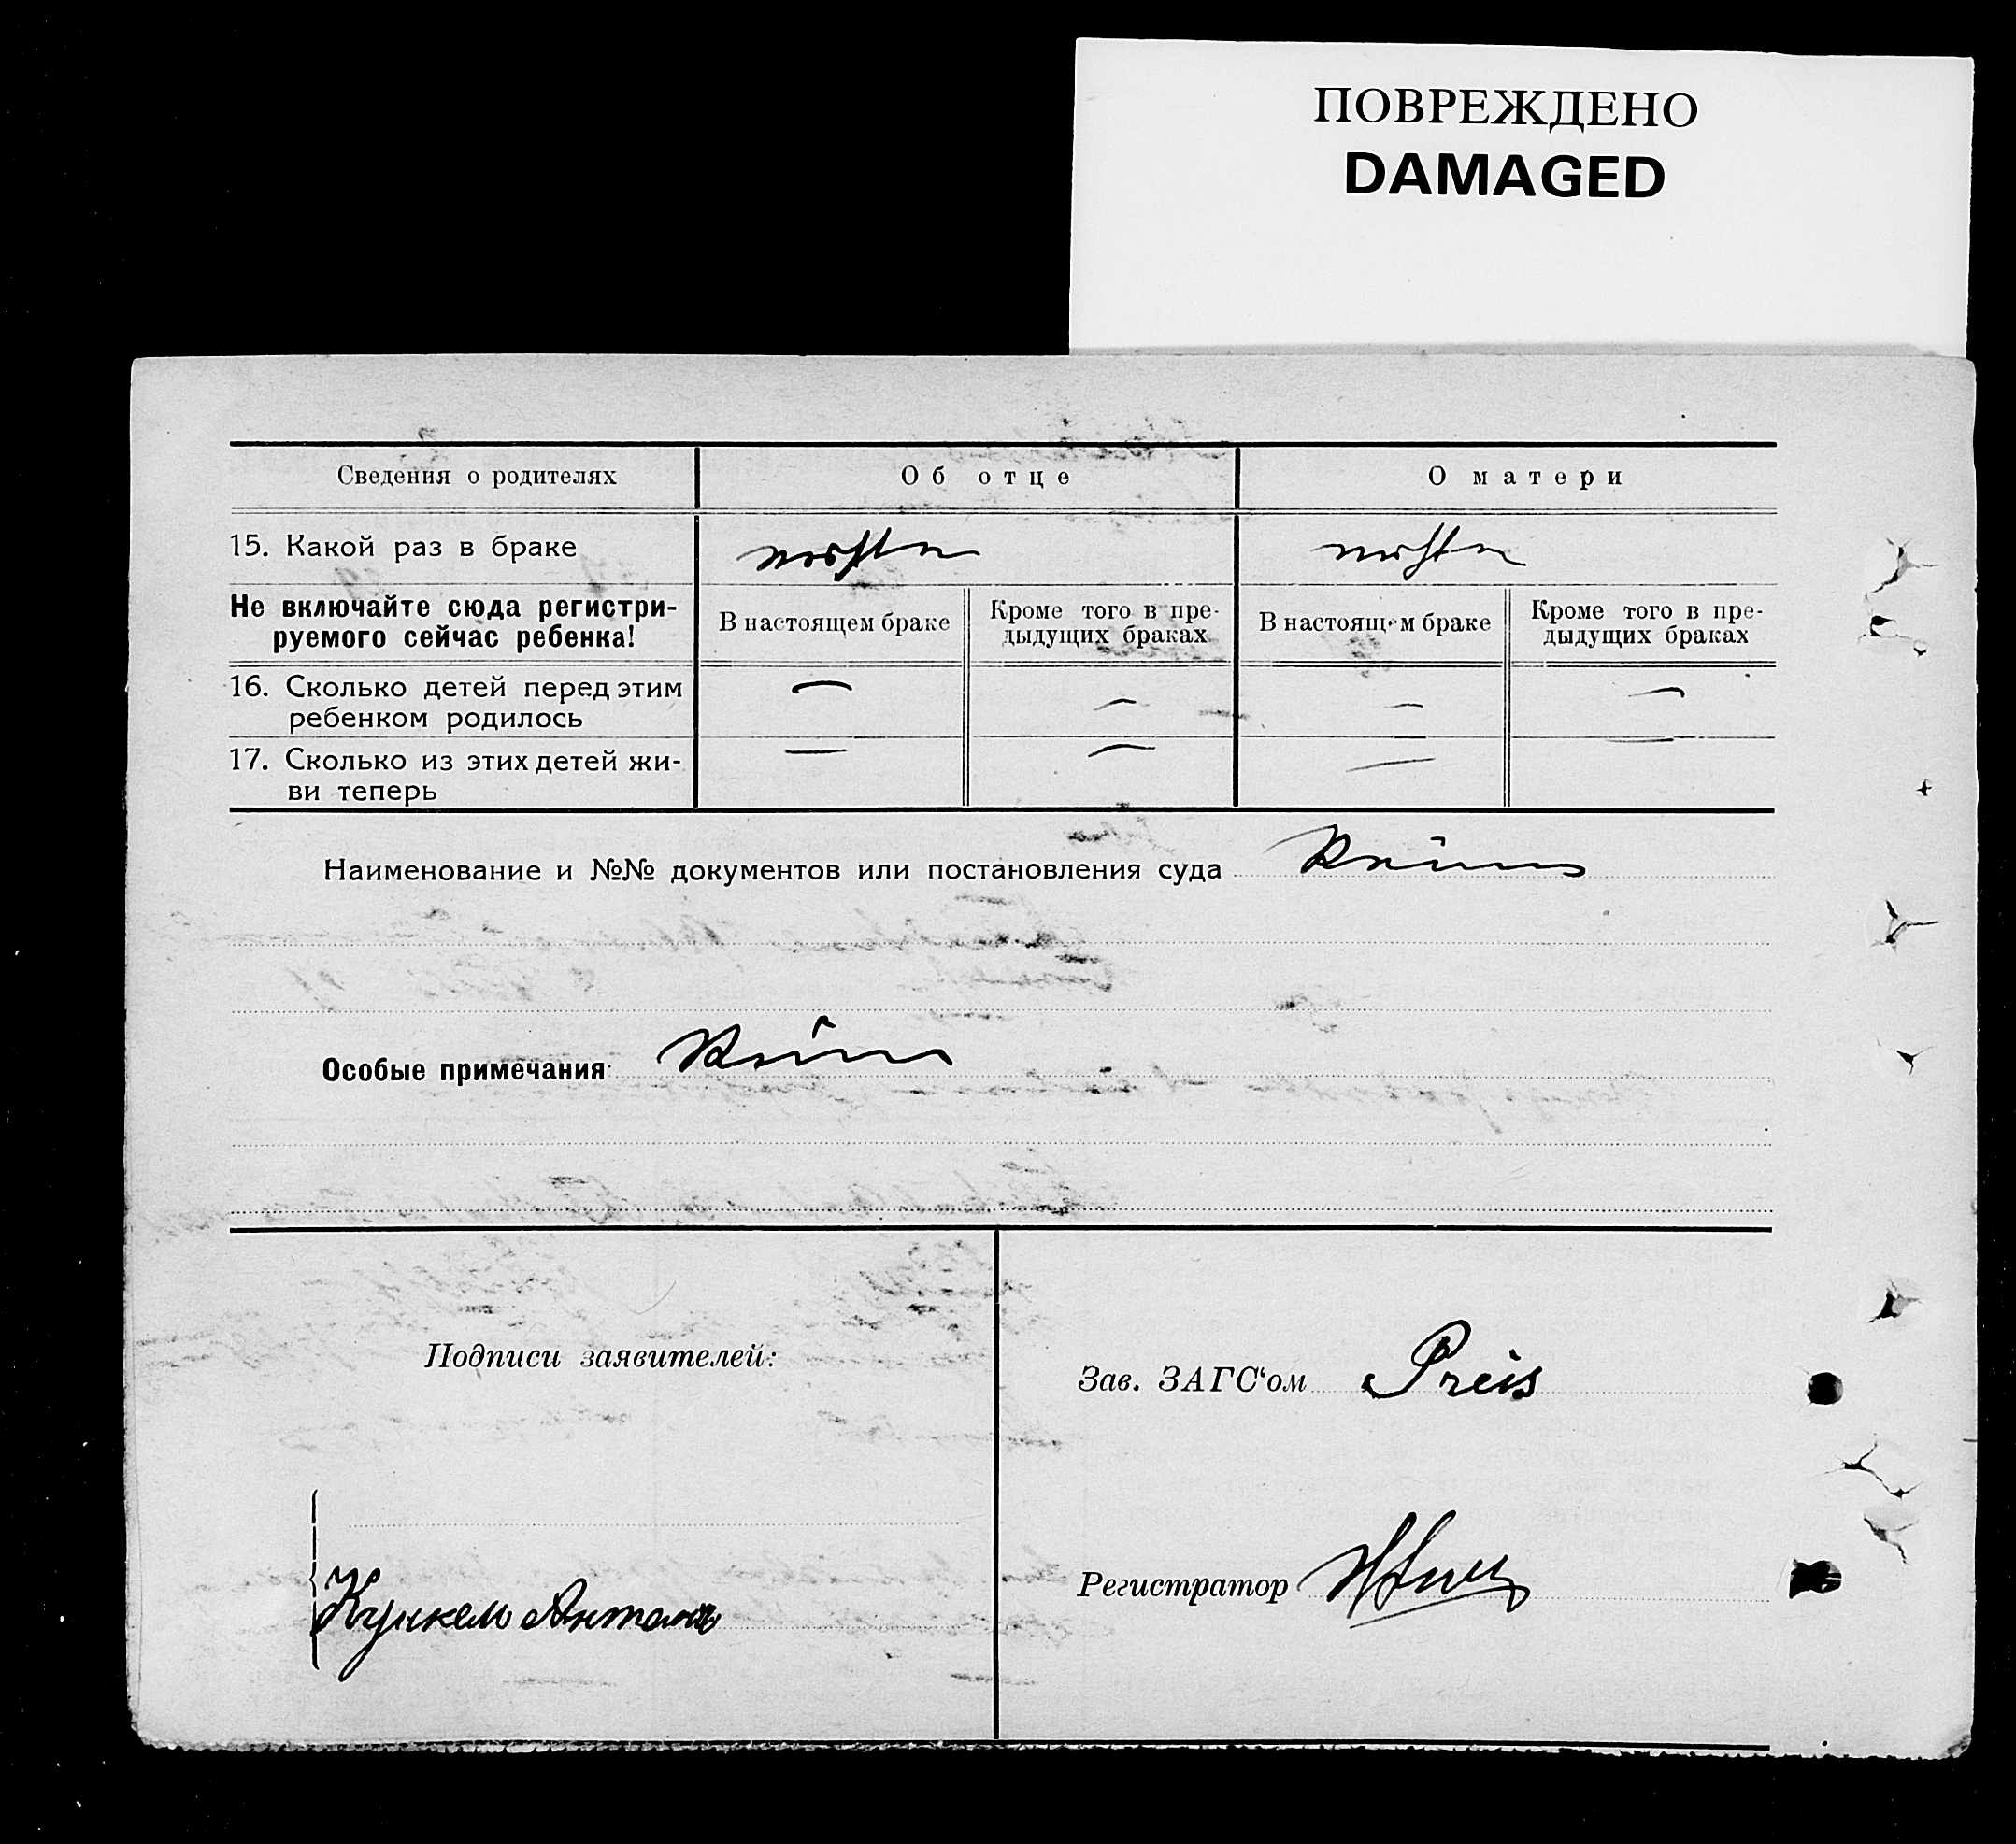 ПОВРЕЖДЕНО
DAMAGED
Сведения о родителях
Об отце
О матери
15. Какой раз в браке
Не включайте сюда регистри-
руемого сейчас ребенка!
В настоящем браке
Кроме того в пре-
дыдущих браках
В настоящем браке
Кроме того в пре-
дыдущих браках
16. Сколько детей перед этим
ребенком родилось
— — — —
17. Сколько из этих детей жи-
ви теперь
— — — —
Наименование и №№ документов или постановления суда
Особые примечания
Подписи заявителей:
Зав. ЗАГС‘ом Preis
Регистратор
Кункель Антонъ